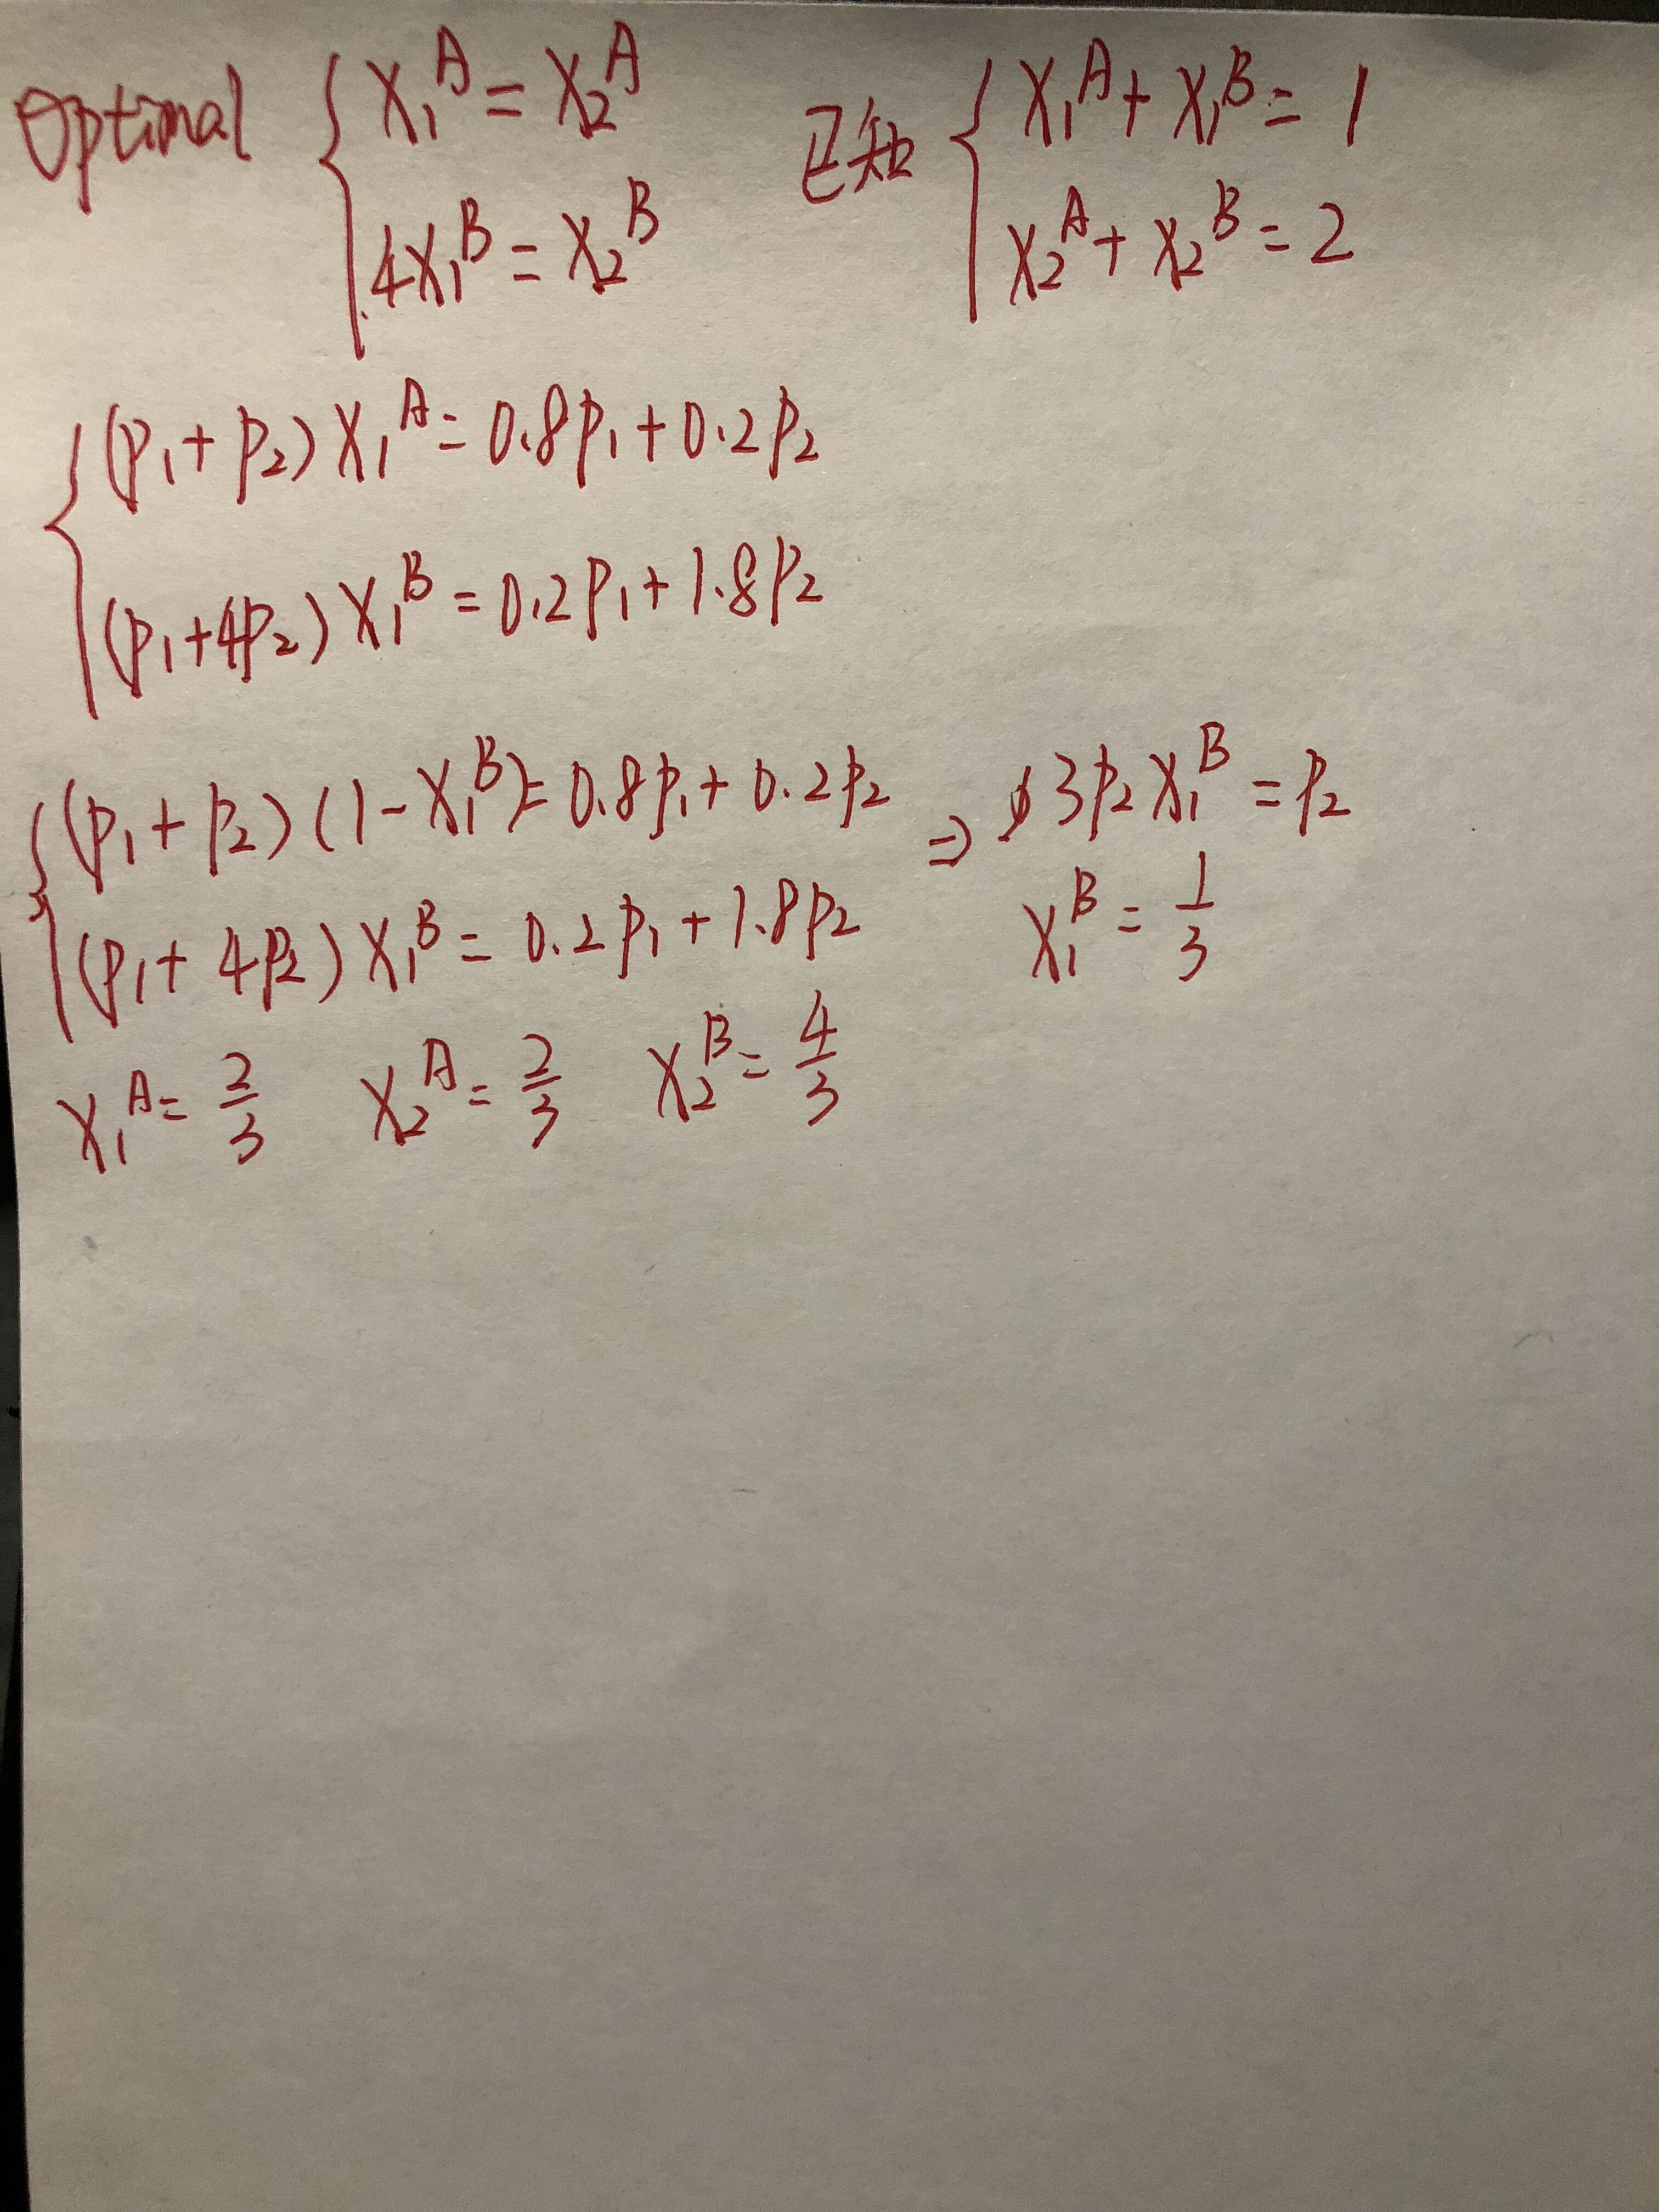 Optimal { X₁ᴬ = X₂ᴬ 已知 { X₁ᴬ + X₁ᴮ = 1
4X₁ᴮ = X₂ᴮ X₂ᴬ + X₂ᴮ = 2
{ (p₁ + p₂) X₁ᴬ = 0.8p₁ + 0.2p₂
(p₁+4p₂) X₁ᴮ = 0.2p₁ + 1.8p₂
{ (p₁ + p₂) (1 - X₁ᴮ) = 0.8p₁ + 0.2p₂ ⇒ 3p₂ X₁ᴮ = p₂
(p₁ + 4p₂) X₁ᴮ = 0.2p₁ + 1.8p₂ X₁ᴮ = 1/3
X₁ᴬ = 2/3 X₂ᴬ = 2/3 X₂ᴮ = 4/3